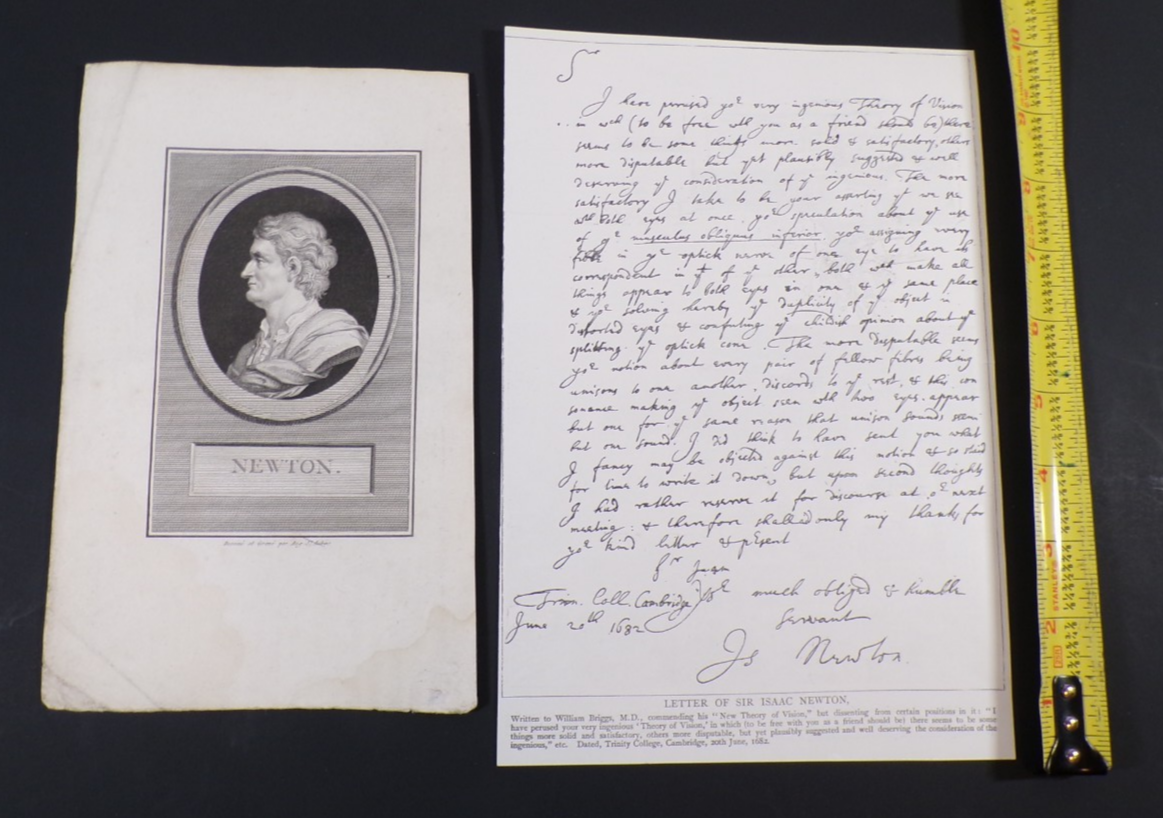 NEWTON.
Sr
I have perused yor very ingenious Theory of Vision
in wch (to be free wth you as a friend should be) there
seems to be some things more solid & satisfactory, others
more disputable but yet plausibly suggested & well
deserving ye consideration of ye ingenious. The more
satisfactory I take to be your asserting yt we see
wth both eyes at once, yor speculation about ye use
of ye musculus obliquus inferior, yor assigning every
fibre in ye optick nerve of one eye to have its
correspondent in yt of ye other, both wch make all
things appear to both eyes in one & ye same place
& yor solving hereby ye duplicity of ye object in
distorted eyes & confuting ye childish opinion about ye
splitting ye optick cone. The more disputable seems
yor notion about every pair of fellow fibres being
unisons to one another, discords to ye rest, & this con
sonance making ye object seen wth two eyes appear
but one for ye same reason that unison sounds seem
but one sound. I did think to have sent you what
I fancy may be objected against this notion & so staid
for time to write it down, but upon second thoughts
I had rather reserve it for discourse at or next
meeting: & therefore shall add only my thanks for
yor kind letter & present
Sr I am
Trin. Coll. Cambridge Yor much obliged & humble
June 20th 1682 Servant
Is Newton.
LETTER OF SIR ISAAC NEWTON,
Written to William Briggs, M.D., commending his "New Theory of Vision," but dissenting from certain positions in it: "I
have perused your very ingenious 'Theory of Vision,' in which (to be free with you as a friend should be) there seems to be some
things more solid and satisfactory, others more disputable, but yet plausibly suggested and well deserving the consideration of the
ingenious," etc. Dated, Trinity College, Cambridge, 20th June, 1682.
10
9
8
7
6
5
4
3
STANLEY
2
1